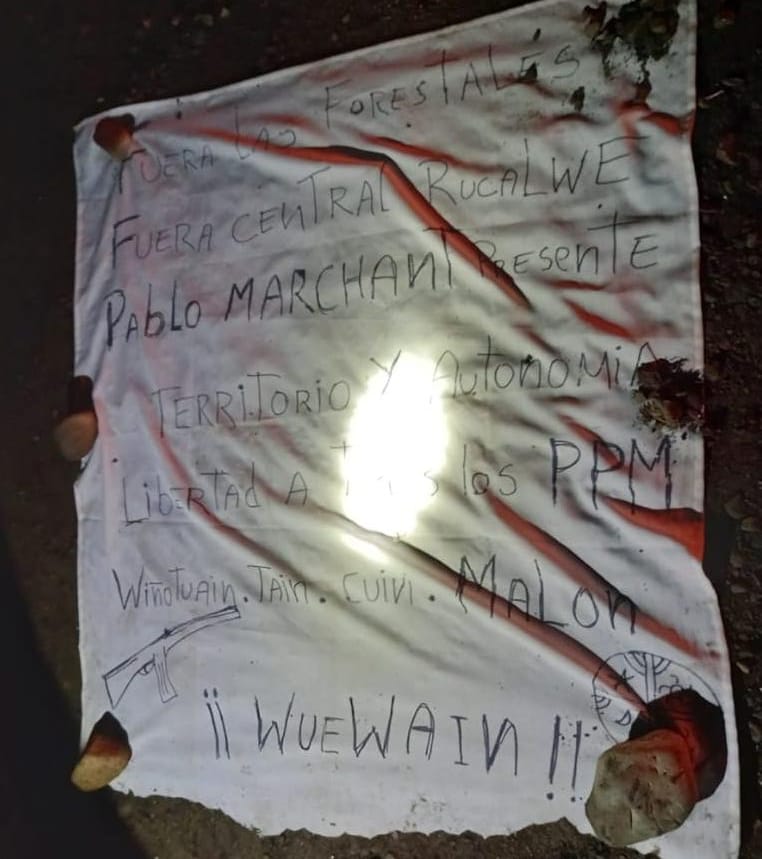 FUERA LAS FORESTALES
FUERA CENTRAL RUCALWE
PABLO MARCHANT PRESENTE
TERRITORIO Y AUTONOMIA
LIBERTAD A los PPM
Wiñotuain. Tain. cuivi. MALON
¡¡ WUEWAIN !!